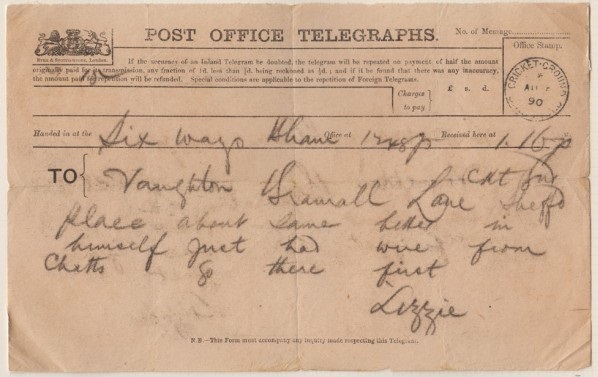 POST OFFICE TELEGRAPHS.
No. of Message
If the accuracy of an Inland Telegram be doubted, the telegram will be repeated on payment of half the amount
originally paid for its transmission, any fraction of 1d. less than ½d. being reckoned as ½d.; and if it be found that there was any inaccuracy,
the amount paid for repetition will be refunded. Special conditions are applicable to the repetition of Foreign Telegrams.
Office Stamp.
CRICKET-GROUND
AU
90
Charges to pay
£ s. d.
Handed in at the Six Ways Office at Received here at 1.16p
TO Vaughton Bramall Lane Cket Gnd Sheffd
place about same better in
himself just had wire from
Chatts go there first
Lizzie
N.B.—This Form must accompany any inquiry made respecting this Telegram.